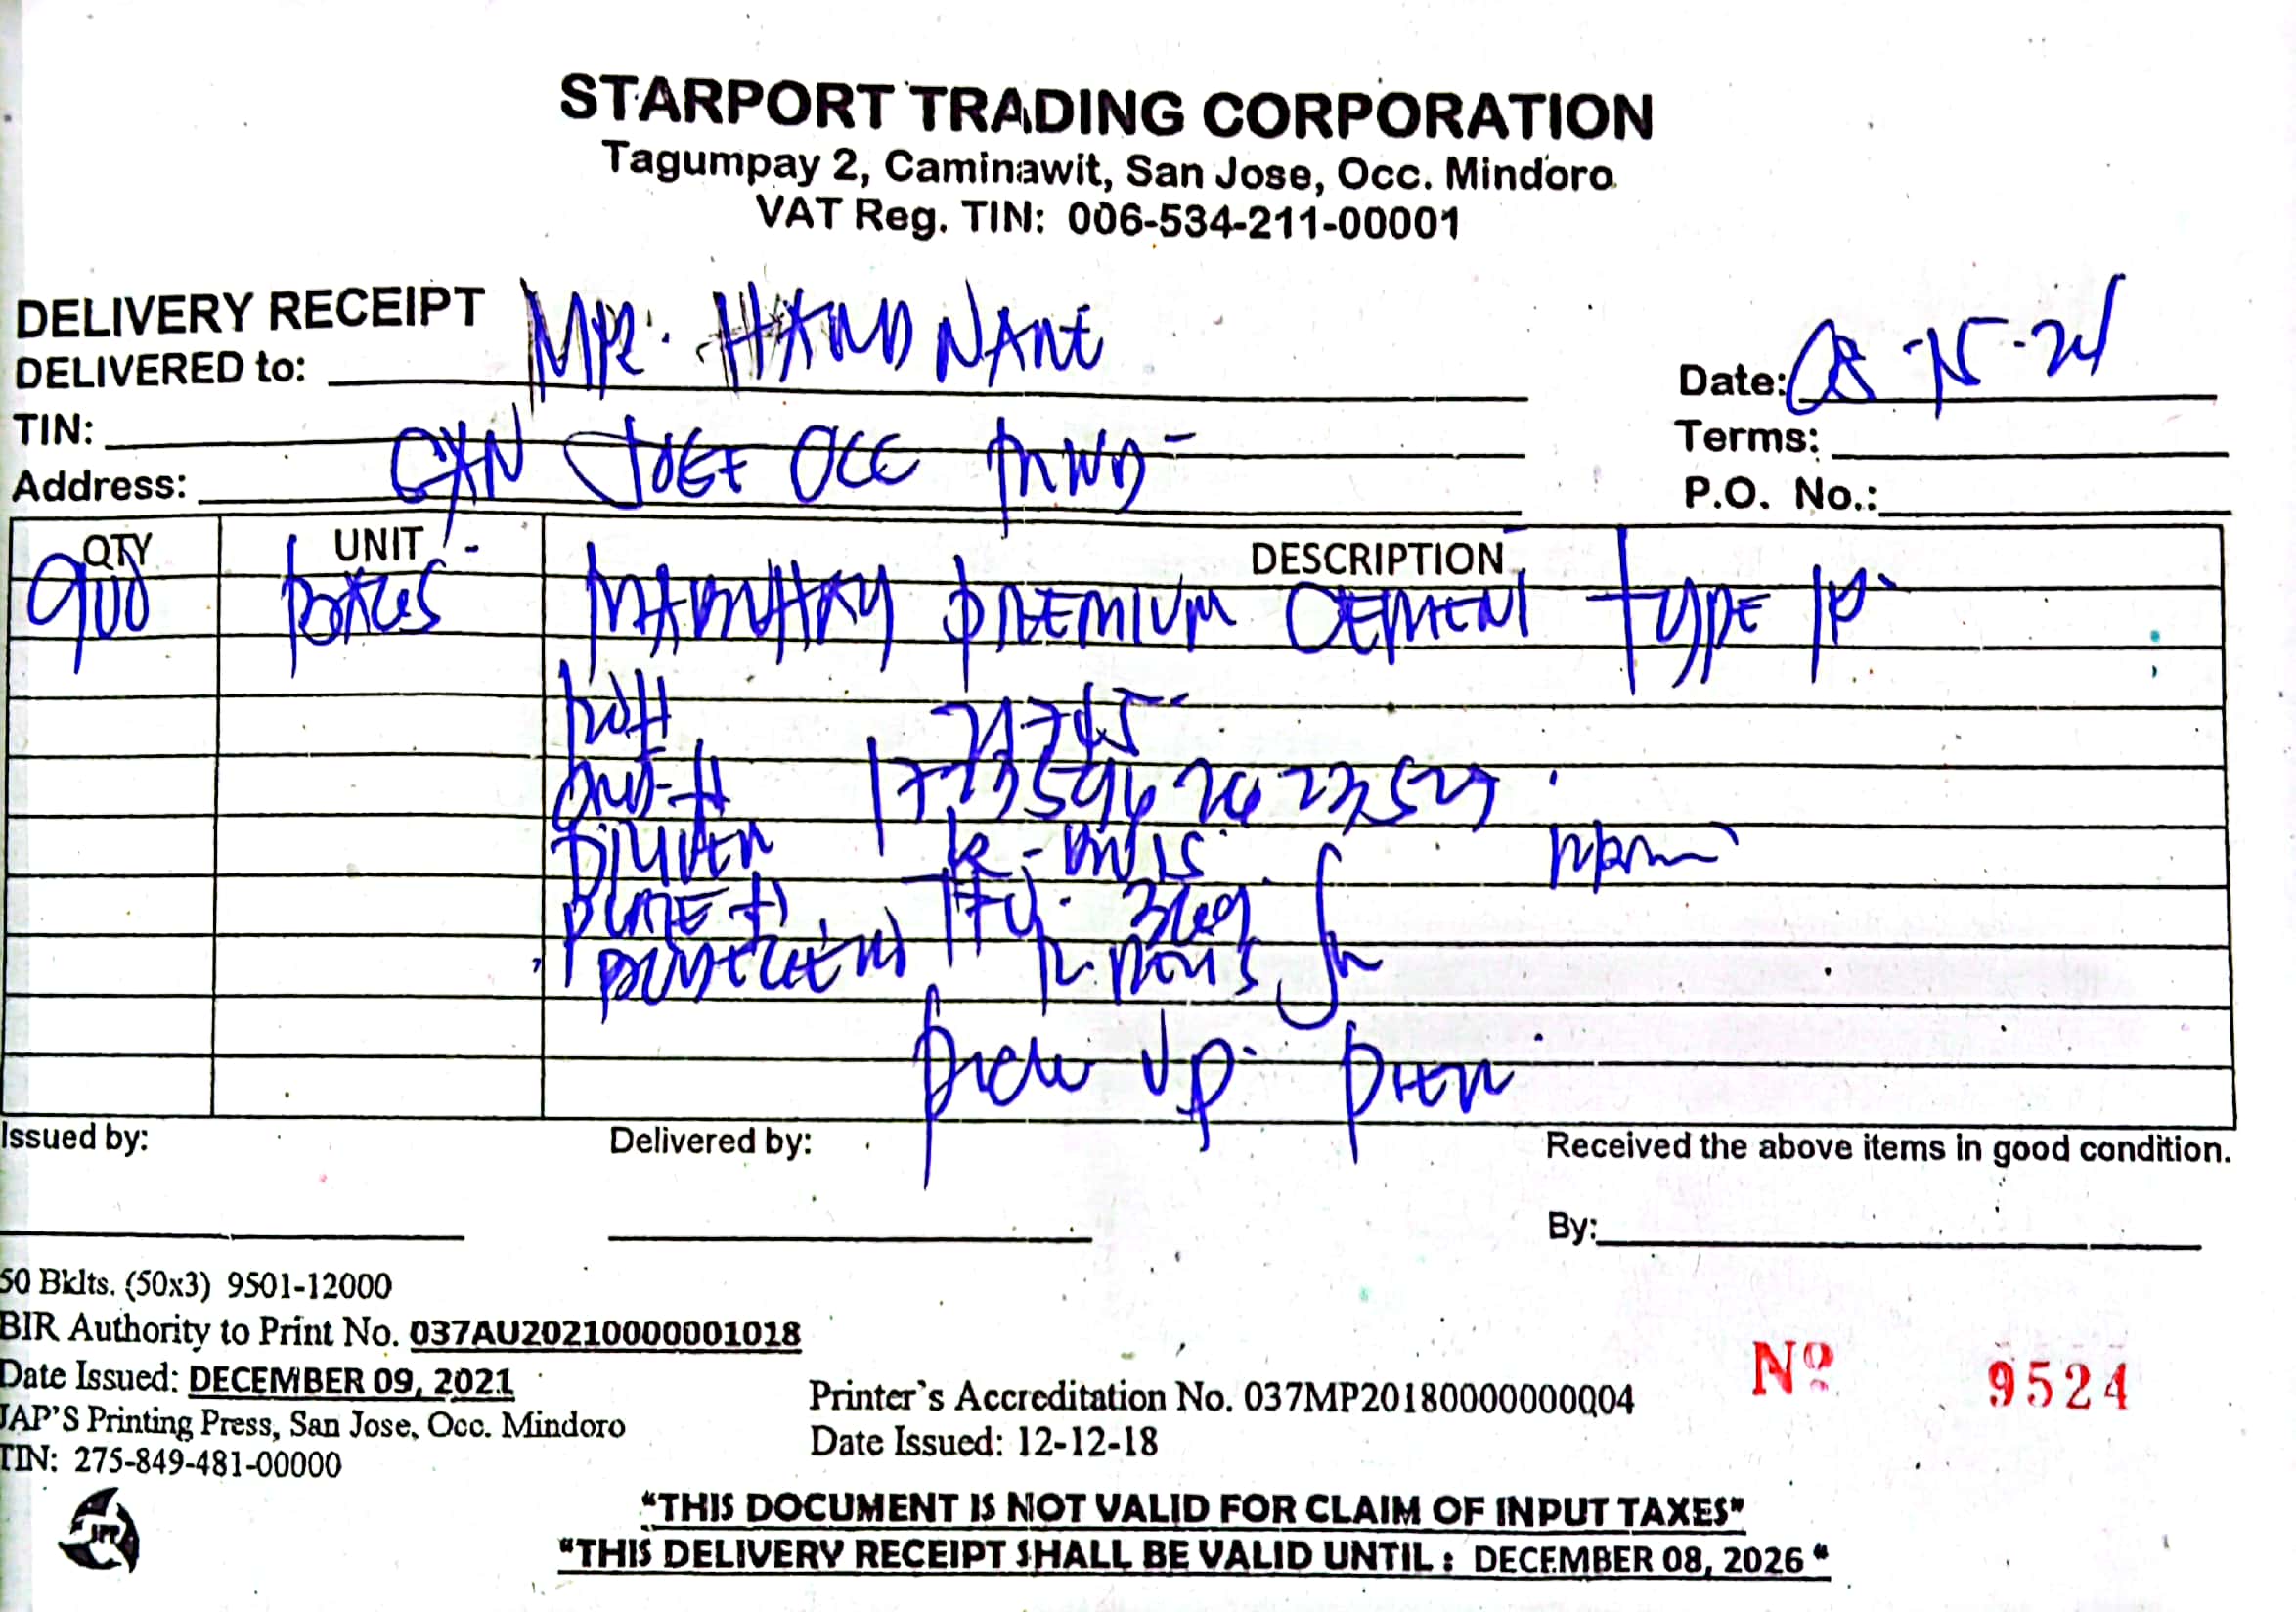 STARPORT TRADING CORPORATION
Tagumpay 2, Caminawit, San Jose, Occ. Mindoro
VAT Reg. TIN: 006-534-211-00001
DELIVERY RECEIPT
DELIVERED to: MR. HAND NANE
Date: 08-15-24
TIN:
Terms:
Address: SAN JOSE OCC MND
P.O. No.:
QTY UNIT DESCRIPTION
900 PREMIUM CEMENT TYPE 1P
21745
PLATE #
Pick up Pier
Issued by: Delivered by: Received the above items in good condition.
By:
50 Bklts. (50x3) 9501-12000
BIR Authority to Print No. 037AU20210000001018
Date Issued: DECEMBER 09, 2021
JAP'S Printing Press, San Jose, Occ. Mindoro
TIN: 275-849-481-00000
Printer's Accreditation No. 037MP20180000000004
Date Issued: 12-12-18
Nº 9524
JPP
"THIS DOCUMENT IS NOT VALID FOR CLAIM OF INPUT TAXES"
"THIS DELIVERY RECEIPT SHALL BE VALID UNTIL : DECEMBER 08, 2026"